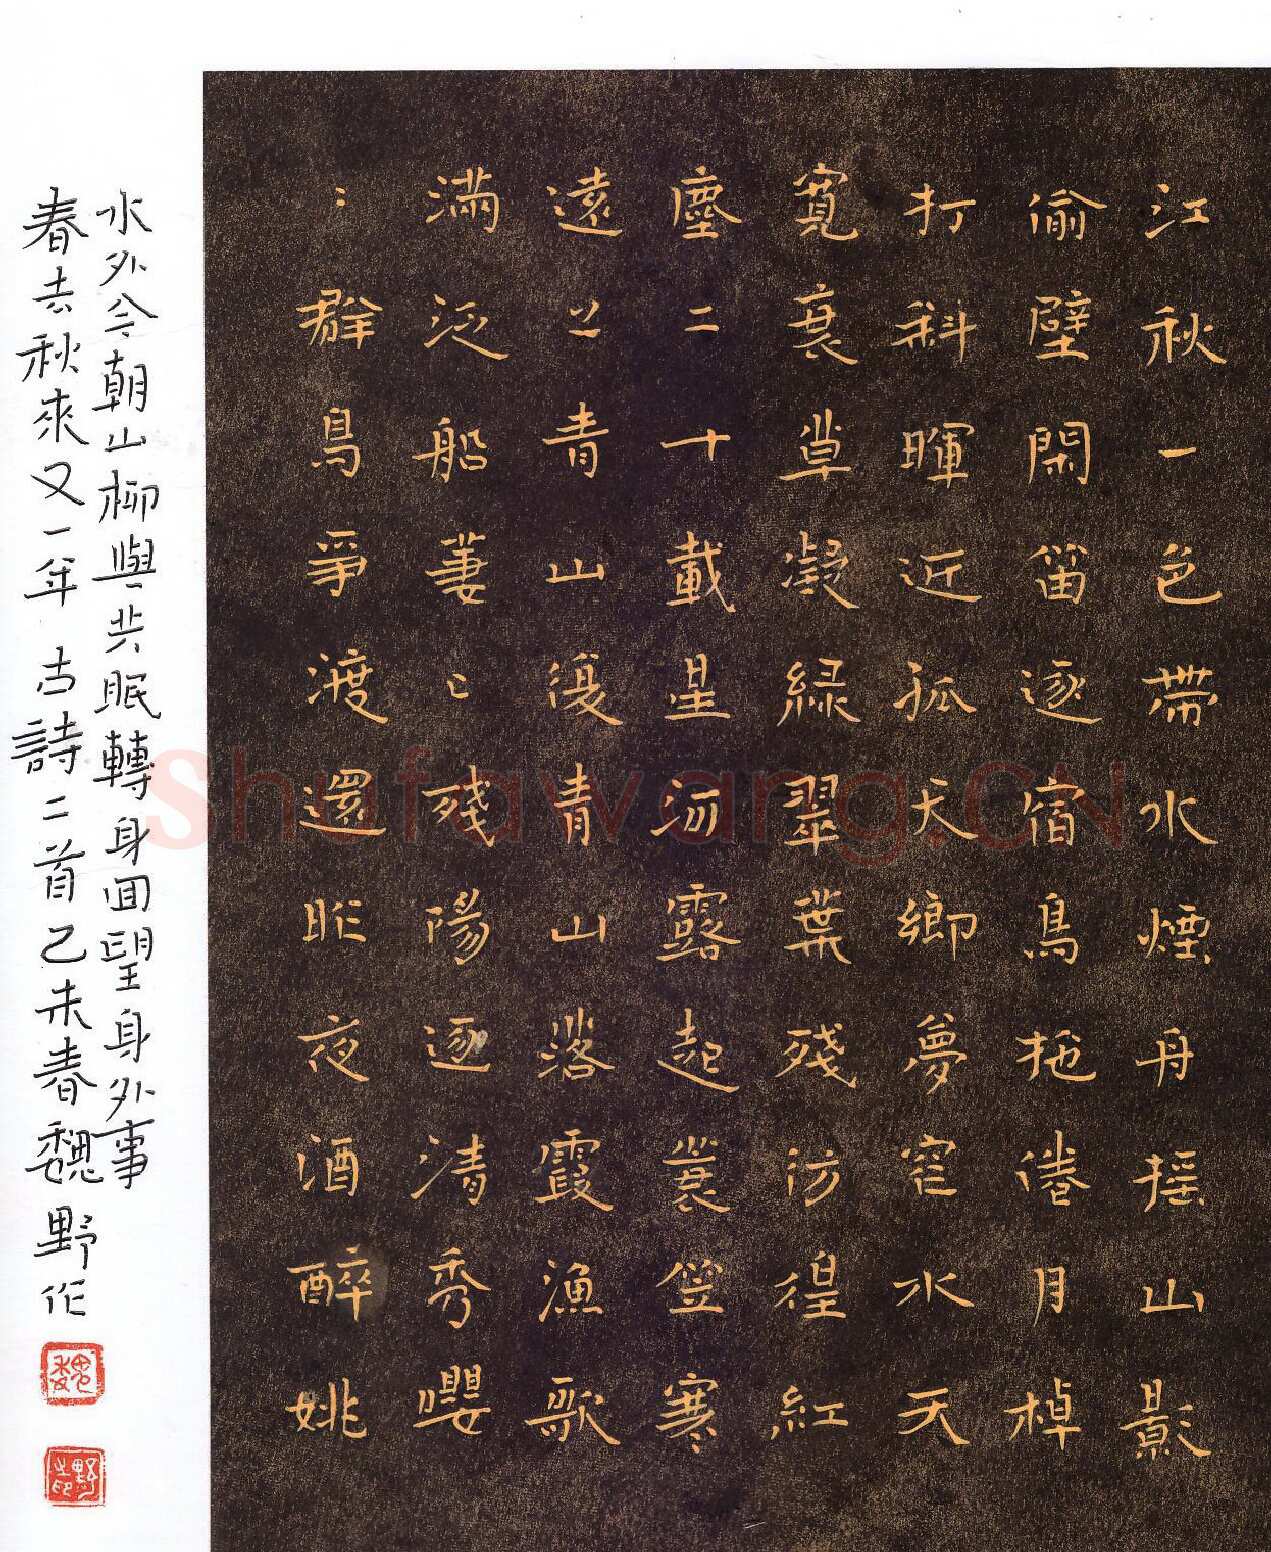 江秋一色帶水煙舟搖山影
偷壁閑笛逐宿鳥拖倦月棹
打斜暉近孤天鄉夢窄水天
寬衰草凝綠翠葉殘彷徨紅
塵二十載星河露起蓑笠寒
遠〻青山復青山落霞漁歌
滿泛船萋〻殘陽逐清秀嚶
〻群鳥爭渡還昨夜酒醉姚
水外今朝山柳與共眠轉身回望身外事
春去秋來又一年 古詩二首己未春魏野作
魏
野印
Shufawang.CN